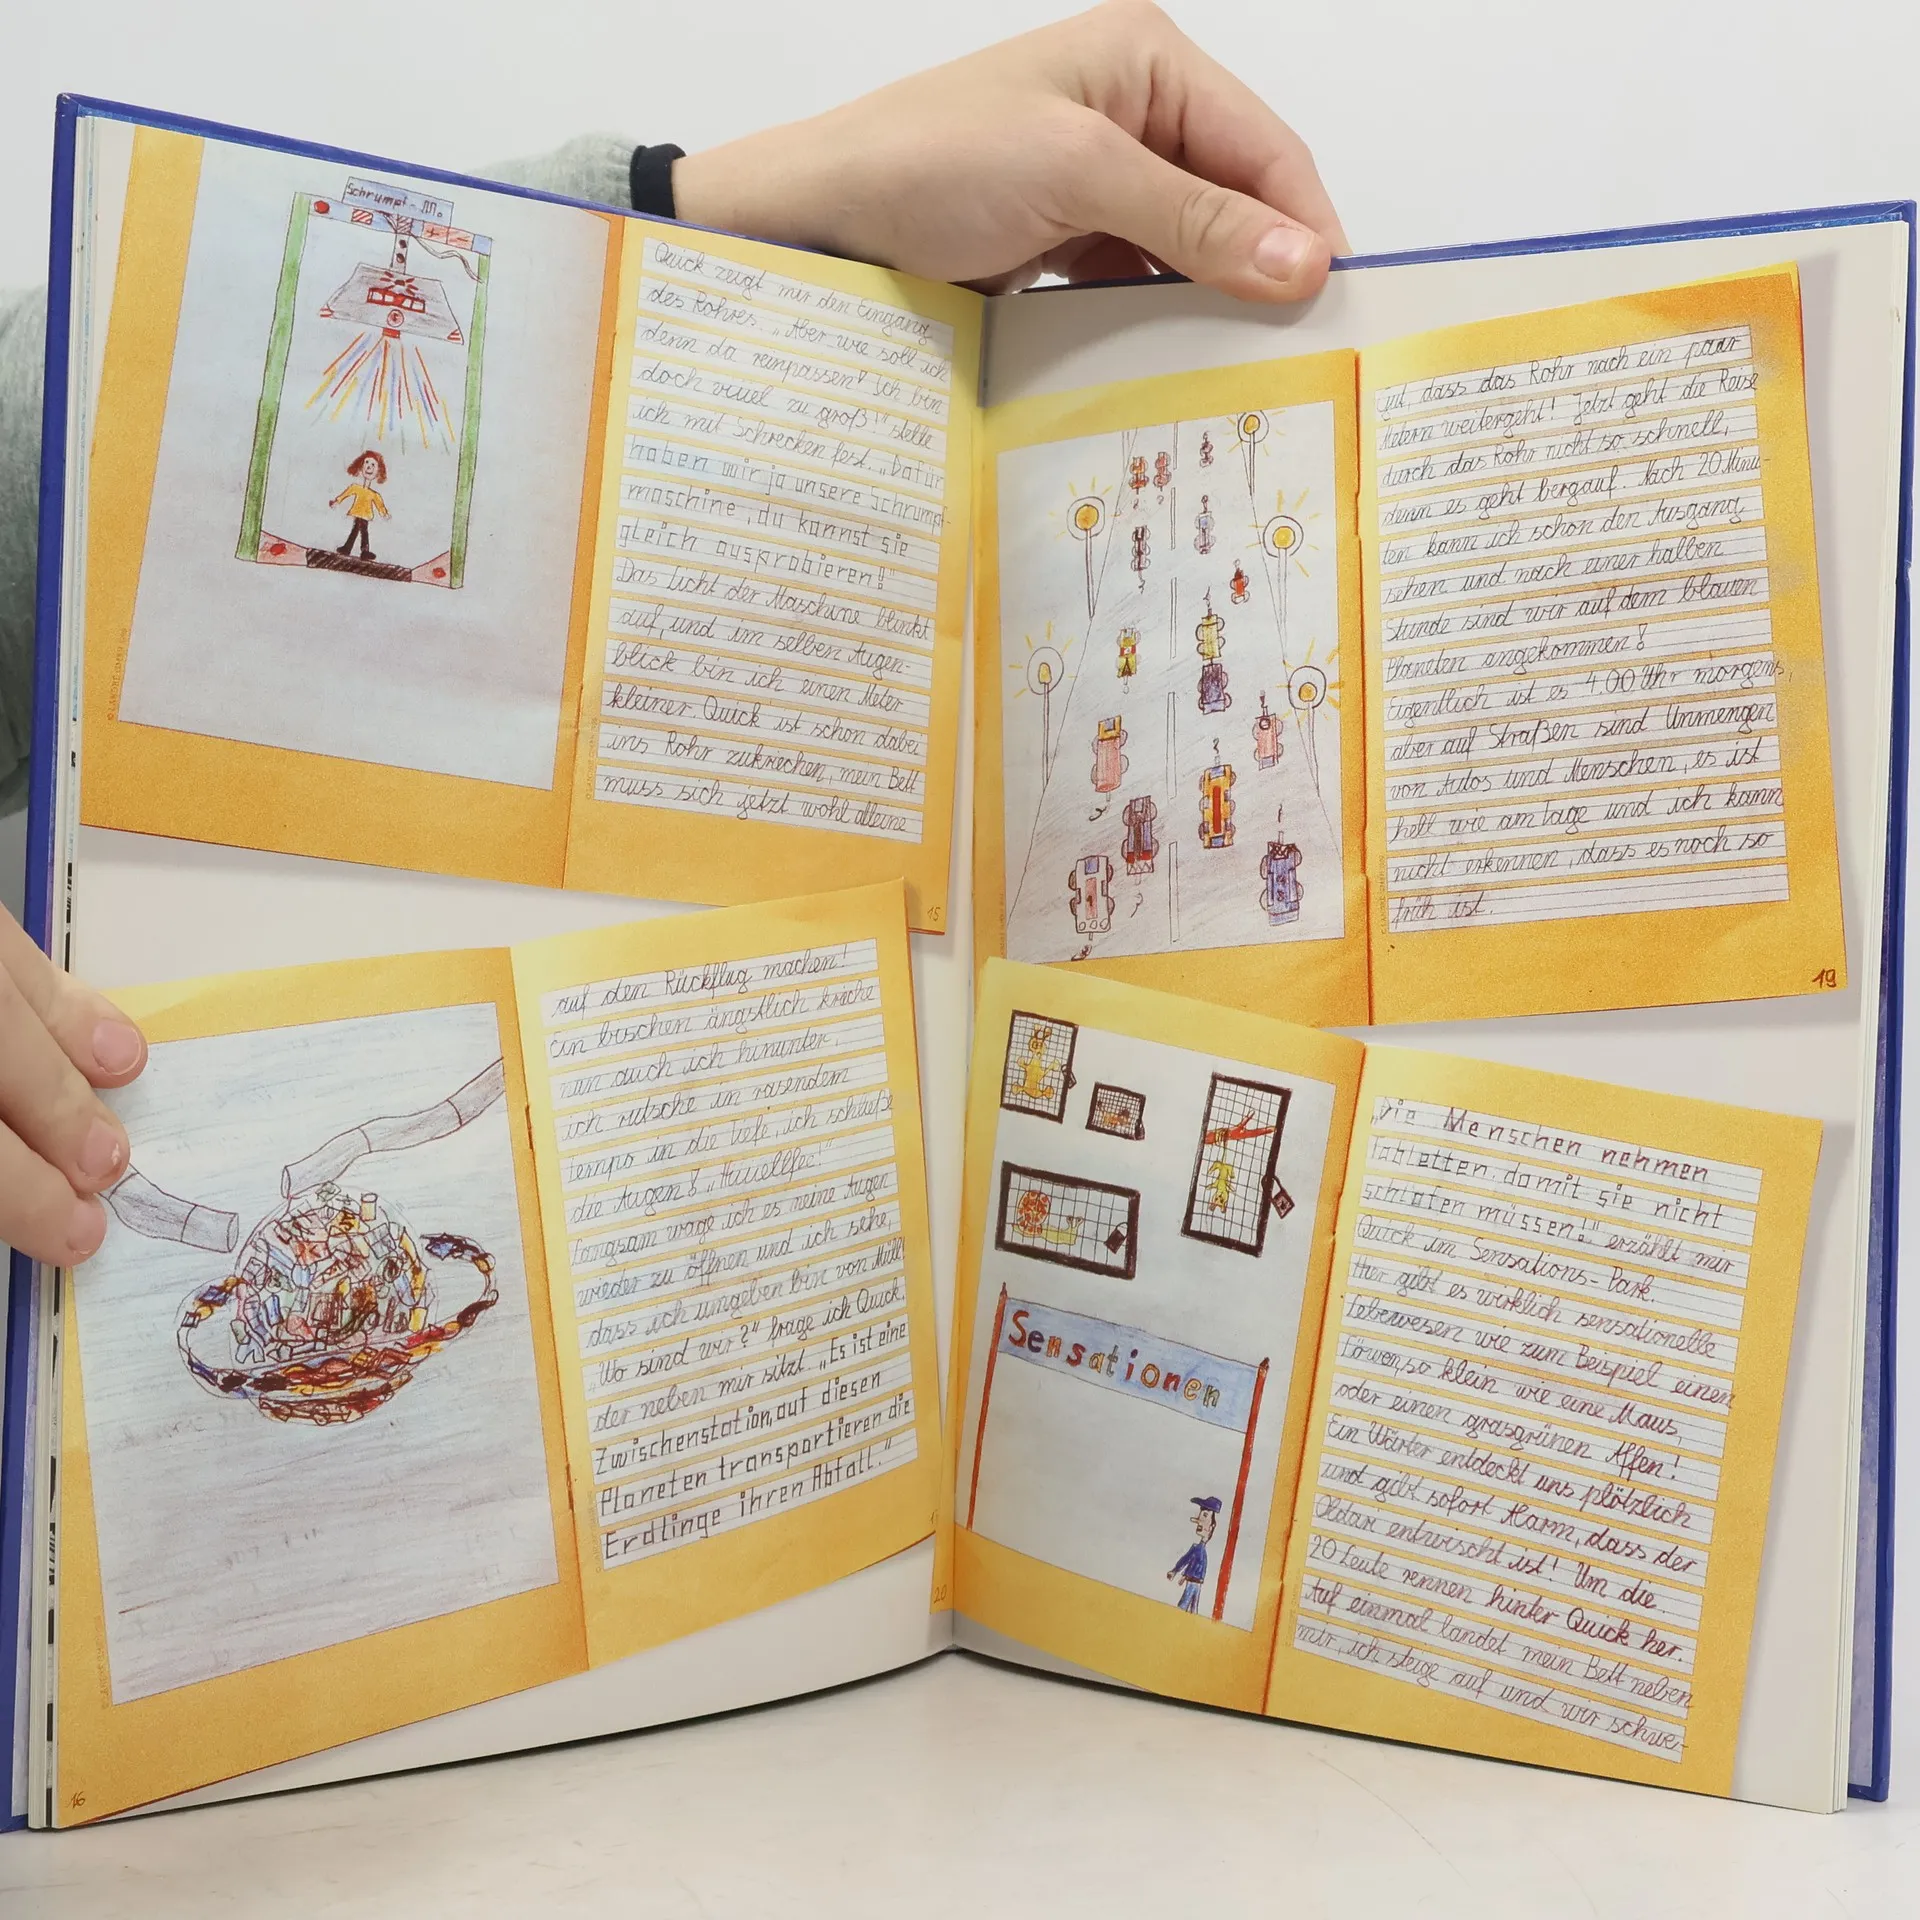 Schrumpf-M.
Quick zeigt mir den Eingang
des Rohres. „Aber wie soll ich
denn da reinpassen? Ich bin
doch viiiel zu groß!" stelle
ich mit Schrecken fest. „Dafür
haben wir ja unsere Schrumpf-
maschine, du kannst sie
gleich ausprobieren!"
Das Licht der Maschine blinkt
auf, und im selben Augen-
blick bin ich einen Meter
kleiner. Quick ist schon dabei
ins Rohr zukriechen, mein Bett
muss sich jetzt wohl alleine
15
auf den Rückflug machen!
Ein bischen ängstlich krieche
nun auch ich hinunter,
ich rutsche in rasendem
Tempo in die Tiefe, ich schließe
die Augen!
Langsam wage ich es meine Augen
wieder zu öffnen und ich sehe,
dass ich umgeben bin von Müll!
„Wo sind wir?" frage ich Quick,
der neben mir sitzt. „Es ist eine
Zwischenstation, auf diesen
Planeten transportieren die
Erdlinge ihren Abfall."
16
gut, dass das Rohr nach ein paar
Metern weitergeht! Jetzt geht die Reise
durch das Rohr nicht so schnell,
denn es geht bergauf. Nach 20 Minu-
ten kann ich schon den Ausgang
sehen und nach einer halben
Stunde sind wir auf dem blauen
Planeten angekommen!
Eigentlich ist es 4.00 Uhr morgens,
aber auf Straßen sind Unmengen
von Autos und Menschen, es ist
hell wie am Tage und ich kann
nicht erkennen, dass es noch so
früh ist.
19
Sensationen
„Die Menschen nehmen
Tabletten, damit sie nicht
schlafen müssen!" erzählt mir
Quick im Sensations-Park.
Hier gibt es wirklich sensationelle
Lebewesen wie zum Beispiel einen
Löwen, so klein wie eine Maus,
oder einen grasgrünen Affen!
Ein Wärter entdeckt uns plötzlich
und gibt sofort Alarm, dass der
entwischt ist! Um die
20 Leute rennen hinter Quick her.
Auf einmal landet mein Bett neben
mir, ich steige auf und wir schwe-
20